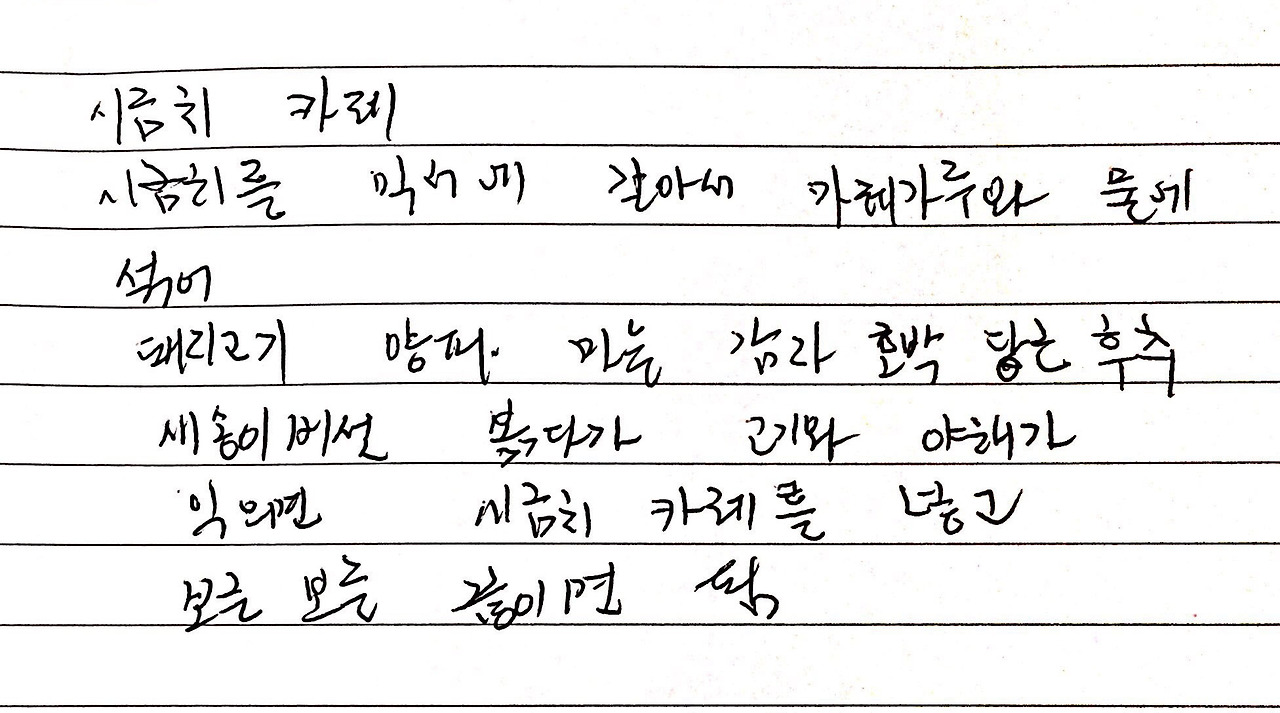 시금치 카레
시금치를 믹서에 갈아서 카레가루와 물에
석어
돼리고기 양파. 마늘 감라 호박 당근 후추
새송이버섯 볶다가 고기와 야해가
익으면 시금치 카레를 넣고
보글 보글 끓이면 됨